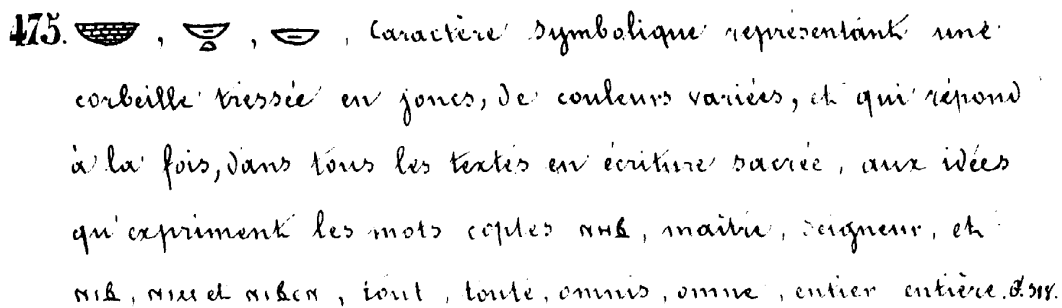 475. 𓎟 , , 𓎟 , Caractère symbolique représentant une
corbeille tressée en joncs, de couleurs variées, et qui répond
à la fois, dans tous les textes en écriture sacrée, aux idées
qu'expriment les mots coptes ⲛⲏⲃ, maître, seigneur, et
ⲛⲓⲃ, ⲛⲓⲙ et ⲛⲓⲃⲉⲛ, tout, toute, omnis, omne, entier entière.